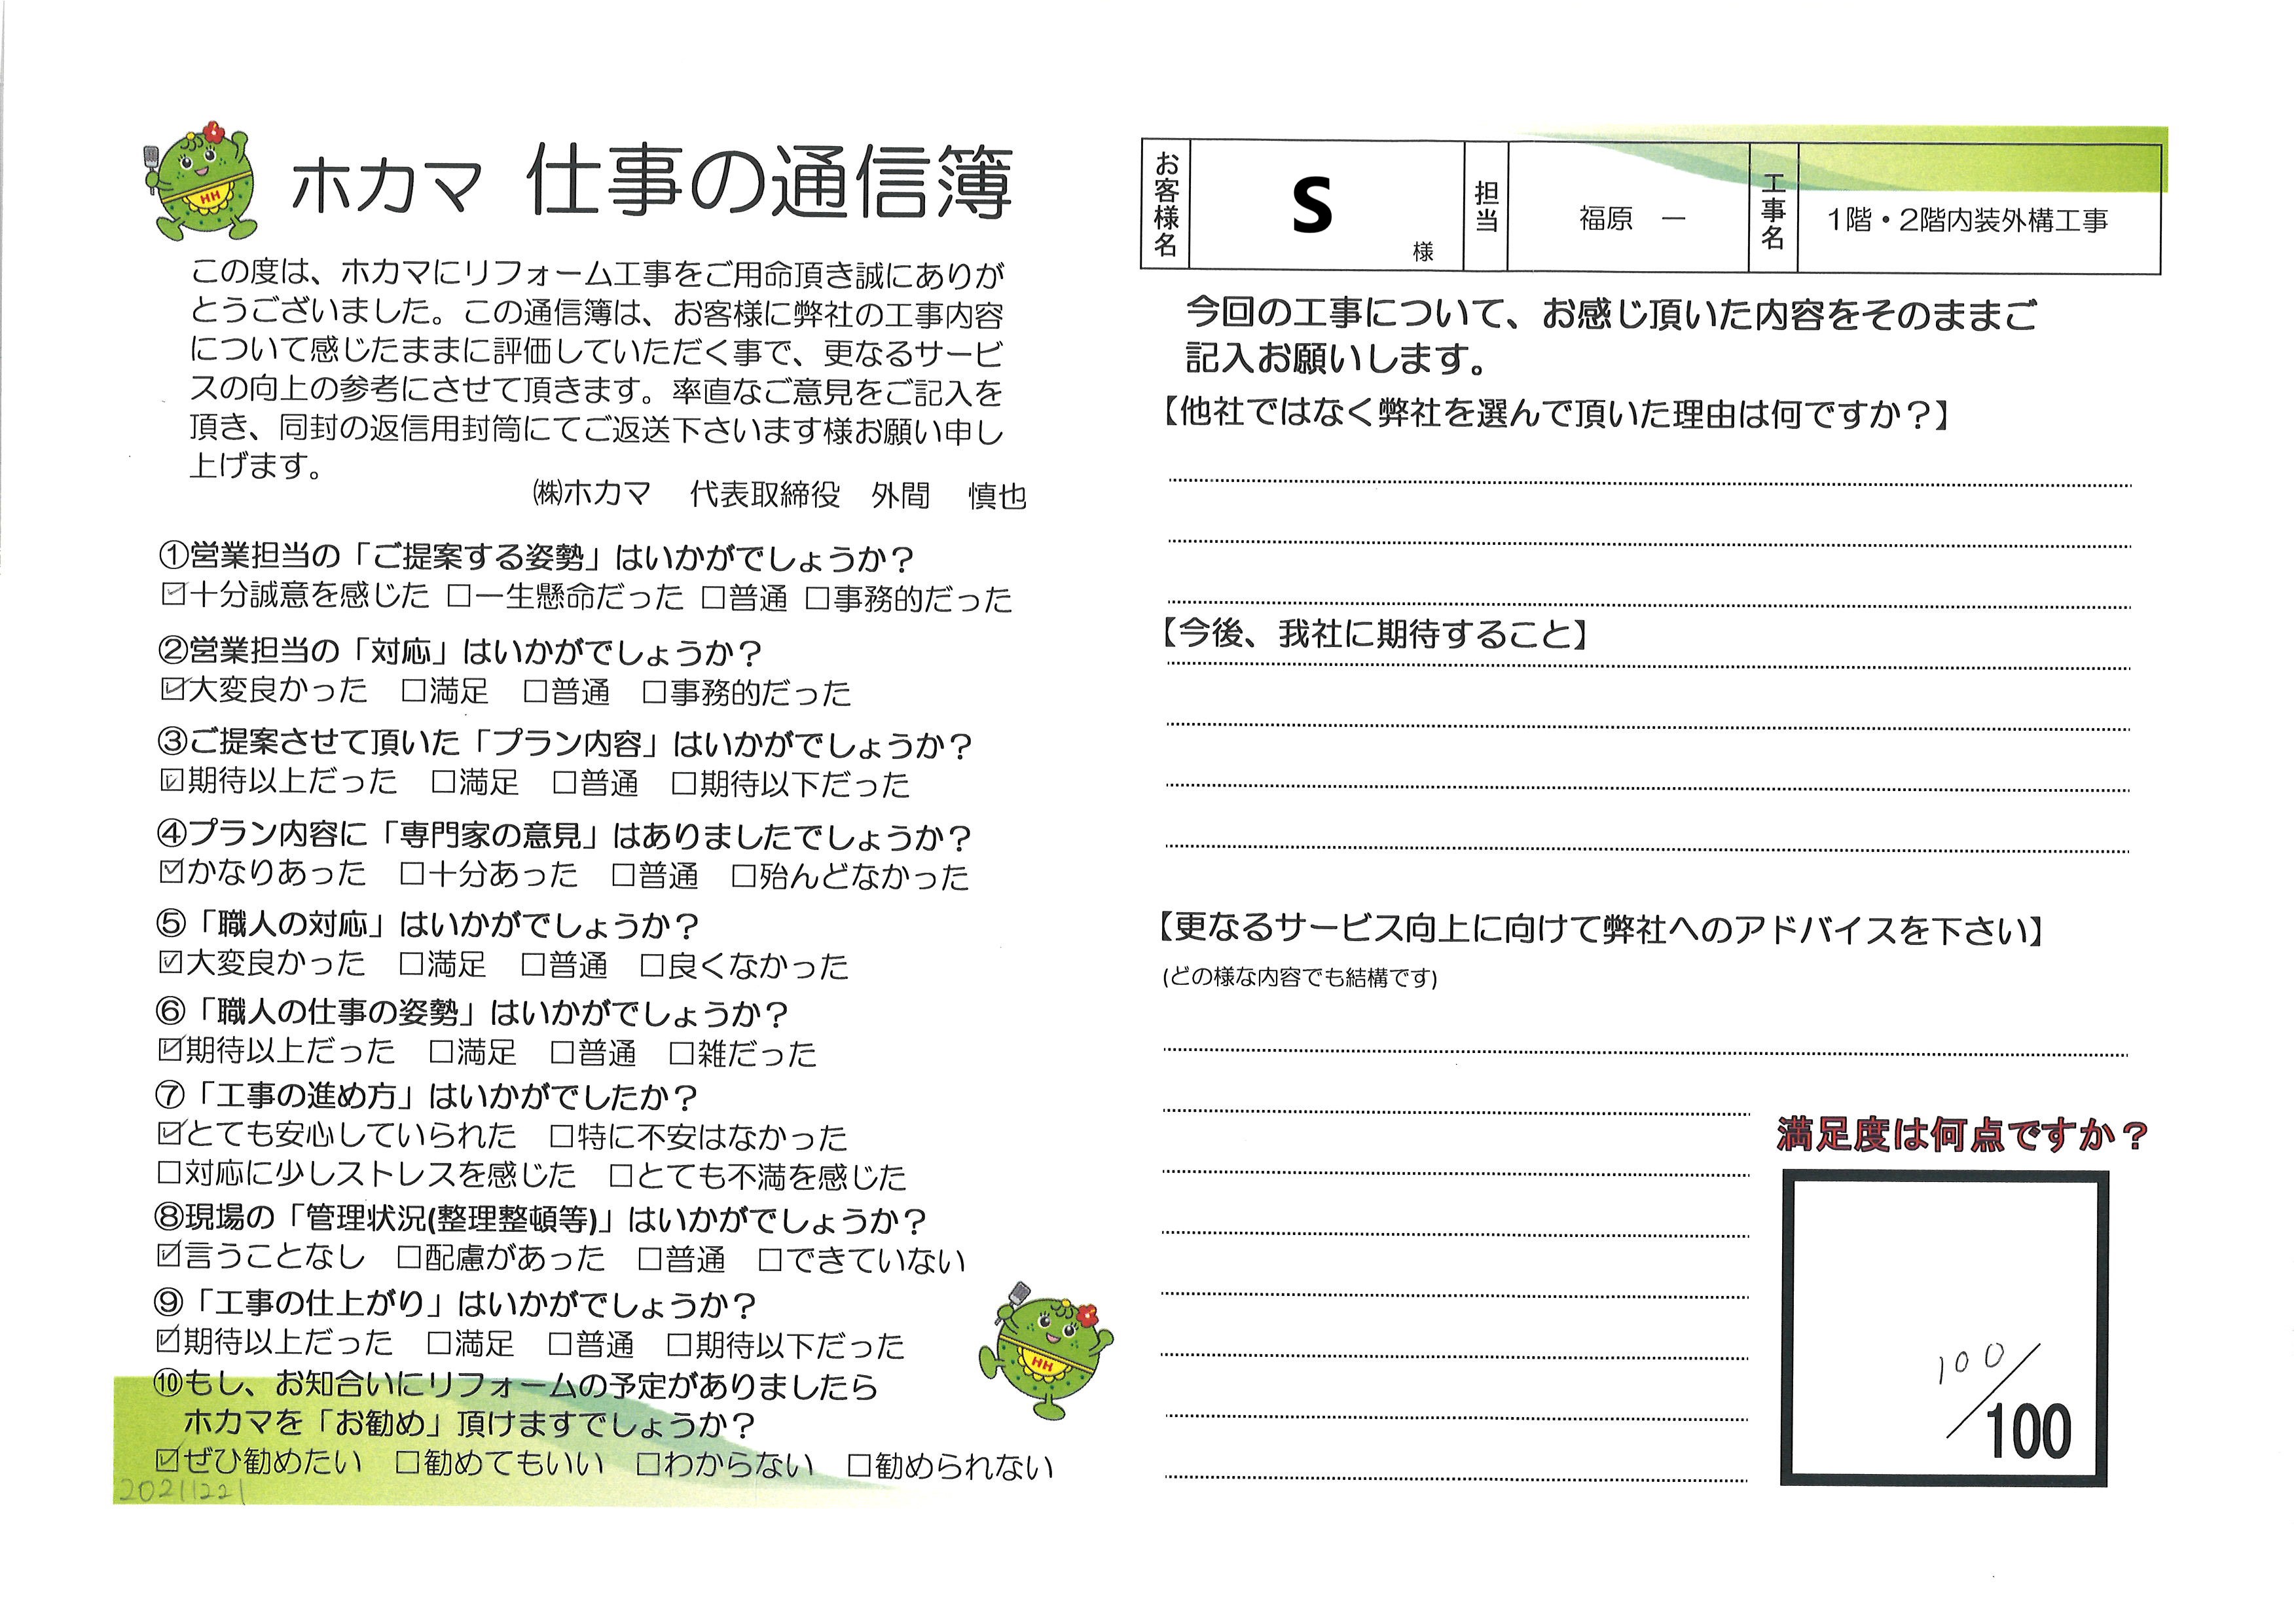 ホカマ 仕事の通信簿
この度は、ホカマにリフォーム工事をご用命頂き誠にありが
とうございました。この通信簿は、お客様に弊社の工事内容
について感じたままに評価していただく事で、更なるサービ
スの向上の参考にさせて頂きます。率直なご意見をご記入を
頂き、同封の返信用封筒にてご返送下さいます様お願い申し
上げます。
㈱ホカマ 代表取締役 外間 慎也
①営業担当の「ご提案する姿勢」はいかがでしょうか？
☑十分誠意を感じた □一生懸命だった □普通 □事務的だった
②営業担当の「対応」はいかがでしょうか？
☑大変良かった □満足 □普通 □事務的だった
③ご提案させて頂いた「プラン内容」はいかがでしょうか？
☑期待以上だった □満足 □普通 □期待以下だった
④プラン内容に「専門家の意見」はありましたでしょうか？
☑かなりあった □十分あった □普通 □殆んどなかった
⑤「職人の対応」はいかがでしょうか？
☑大変良かった □満足 □普通 □良くなかった
⑥「職人の仕事の姿勢」はいかがでしょうか？
☑期待以上だった □満足 □普通 □雑だった
⑦「工事の進め方」はいかがでしたか？
☑とても安心していられた □特に不安はなかった
□対応に少しストレスを感じた □とても不満を感じた
⑧現場の「管理状況(整理整頓等)」はいかがでしょうか？
☑言うことなし □配慮があった □普通 □できていない
⑨「工事の仕上がり」はいかがでしょうか？
☑期待以上だった □満足 □普通 □期待以下だった
⑩もし、お知合いにリフォームの予定がありましたら
ホカマを「お勧め」頂けますでしょうか？
☑ぜひ勧めたい □勧めてもいい □わからない □勧められない
20211221
お客様名 S 様 担当 福原 一 工事名 1階・2階内装外構工事
今回の工事について、お感じ頂いた内容をそのままご
記入お願いします。
【他社ではなく弊社を選んで頂いた理由は何ですか？】
【今後、我社に期待すること】
【更なるサービス向上に向けて弊社へのアドバイスを下さい】
(どの様な内容でも結構です)
満足度は何点ですか？
100/100
HH
HH